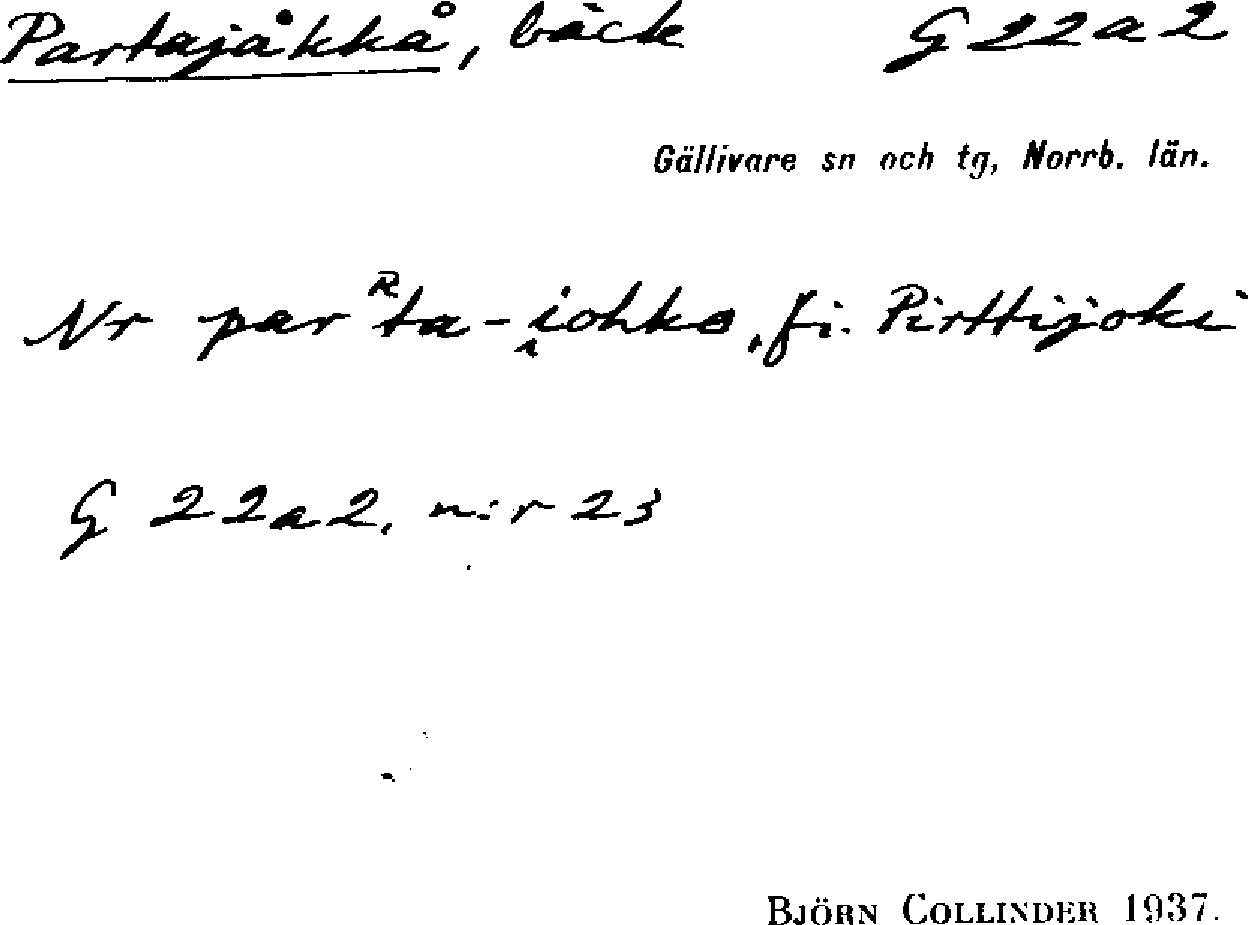 Partajåkkå, bäck G 22 a 2
Gällivare sn och tg, Norrb. län.
Nr parᴿta-i̯ohko, fi. Pirttijoki
G 22 a 2, n:r 23
BJÖRN COLLINDER 1937.